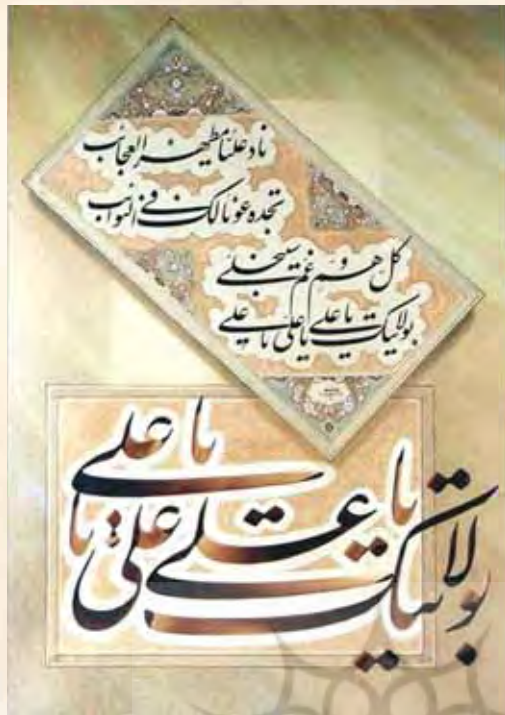 ناد علیًا مظهر العجائب
تجده عونا لک فی النوائب
کل هم و غم سینجلی
بولایتک یا علی یا علی یا علی
بولایتک یا علی یا علی یا علی